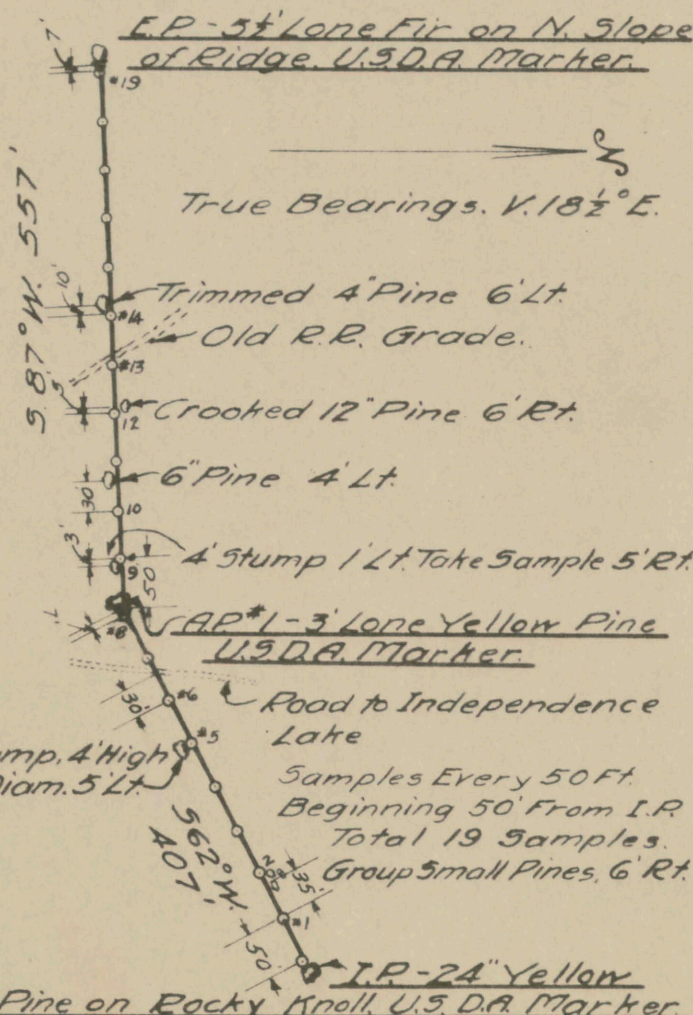 E.P.-5½' Lone Fir on N. Slope
of Ridge. U.S.D.A. Marker.
7'
#19
N
True Bearings. V. 18½° E.
S 87° W. 557'
10'
Trimmed 4" Pine 6' Lt.
#14
Old R.R. Grade.
#13
5'
12
Crooked 12" Pine 6' Rt.
6" Pine 4' Lt.
30'
10
3'
4' Stump 1' Lt. Take Sample 5' Rt.
9
50'
#8
A.P. #1-3' Lone Yellow Pine
U.S.D.A. Marker.
30'
#6
Road to Independence
Lake
#5
mp, 4' High
Diam. 5' Lt.
Samples Every 50 Ft.
Beginning 50' From I.P.
Total 19 Samples.
S62° W.
407'
Group Small Pines, 6' Rt.
35'
#1
50'
I.P.-24" Yellow
Pine on Rocky Knoll. U.S.D.A. Marker.